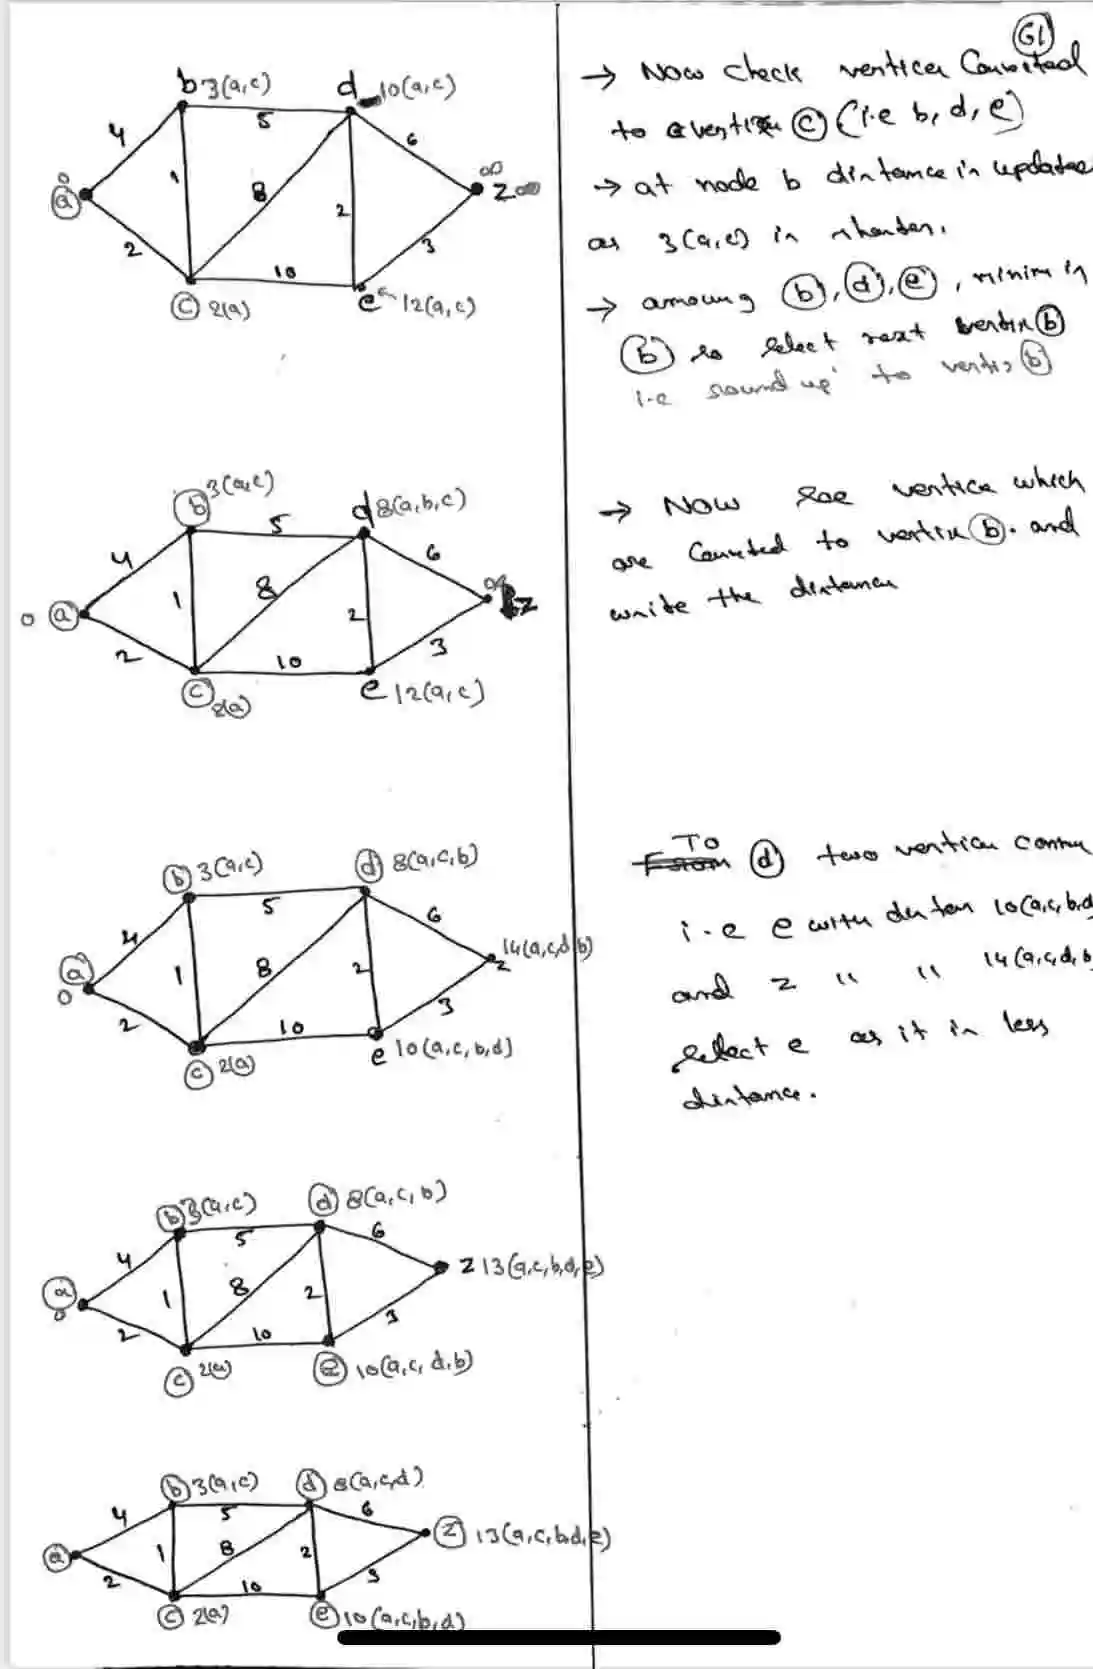 61
b 3(a,c)
d 10(a,c)
4
5
6
0
a
1
8
2
∞
z
2
3
10
c 2(a)
e 12(a,c)
→ Now check vertices
to vertex c (i.e b, d, e)
→ at node b distance is updated
as 3(a,c) is
→ among b, d, e, minim is
b so select next vertex b
i.e round up to vertex b
b 3(a,c)
d 8(a,b,c)
5
4
6
1
8
2
∞
z
0 a
2
3
10
c 2(a)
e 12(a,c)
→ Now see vertice which
are to vertix b. and
write the distance
b 3(a,c)
d 8(a,c,b)
5
4
6
14(a,c,d,b)
z
a
0
1
8
2
2
3
10
c 2(a)
e 10(a,c,b,d)
To
From d two vertices
i.e e with 10(a,c,b,d
and z " " 14(a,c,d,b
select e as it is less
distance.
b 3(a,c)
d 8(a,c,b)
5
4
6
z 13(a,c,b,d,e)
a
0
1
8
2
2
3
10
c 2(a)
e 10(a,c,d,b)
b 3(a,c)
d 8(a,c,d)
5
4
6
z 13(a,c,b,d,e)
a
1
8
2
2
3
10
c 2(a)
e 10(a,c,b,d)